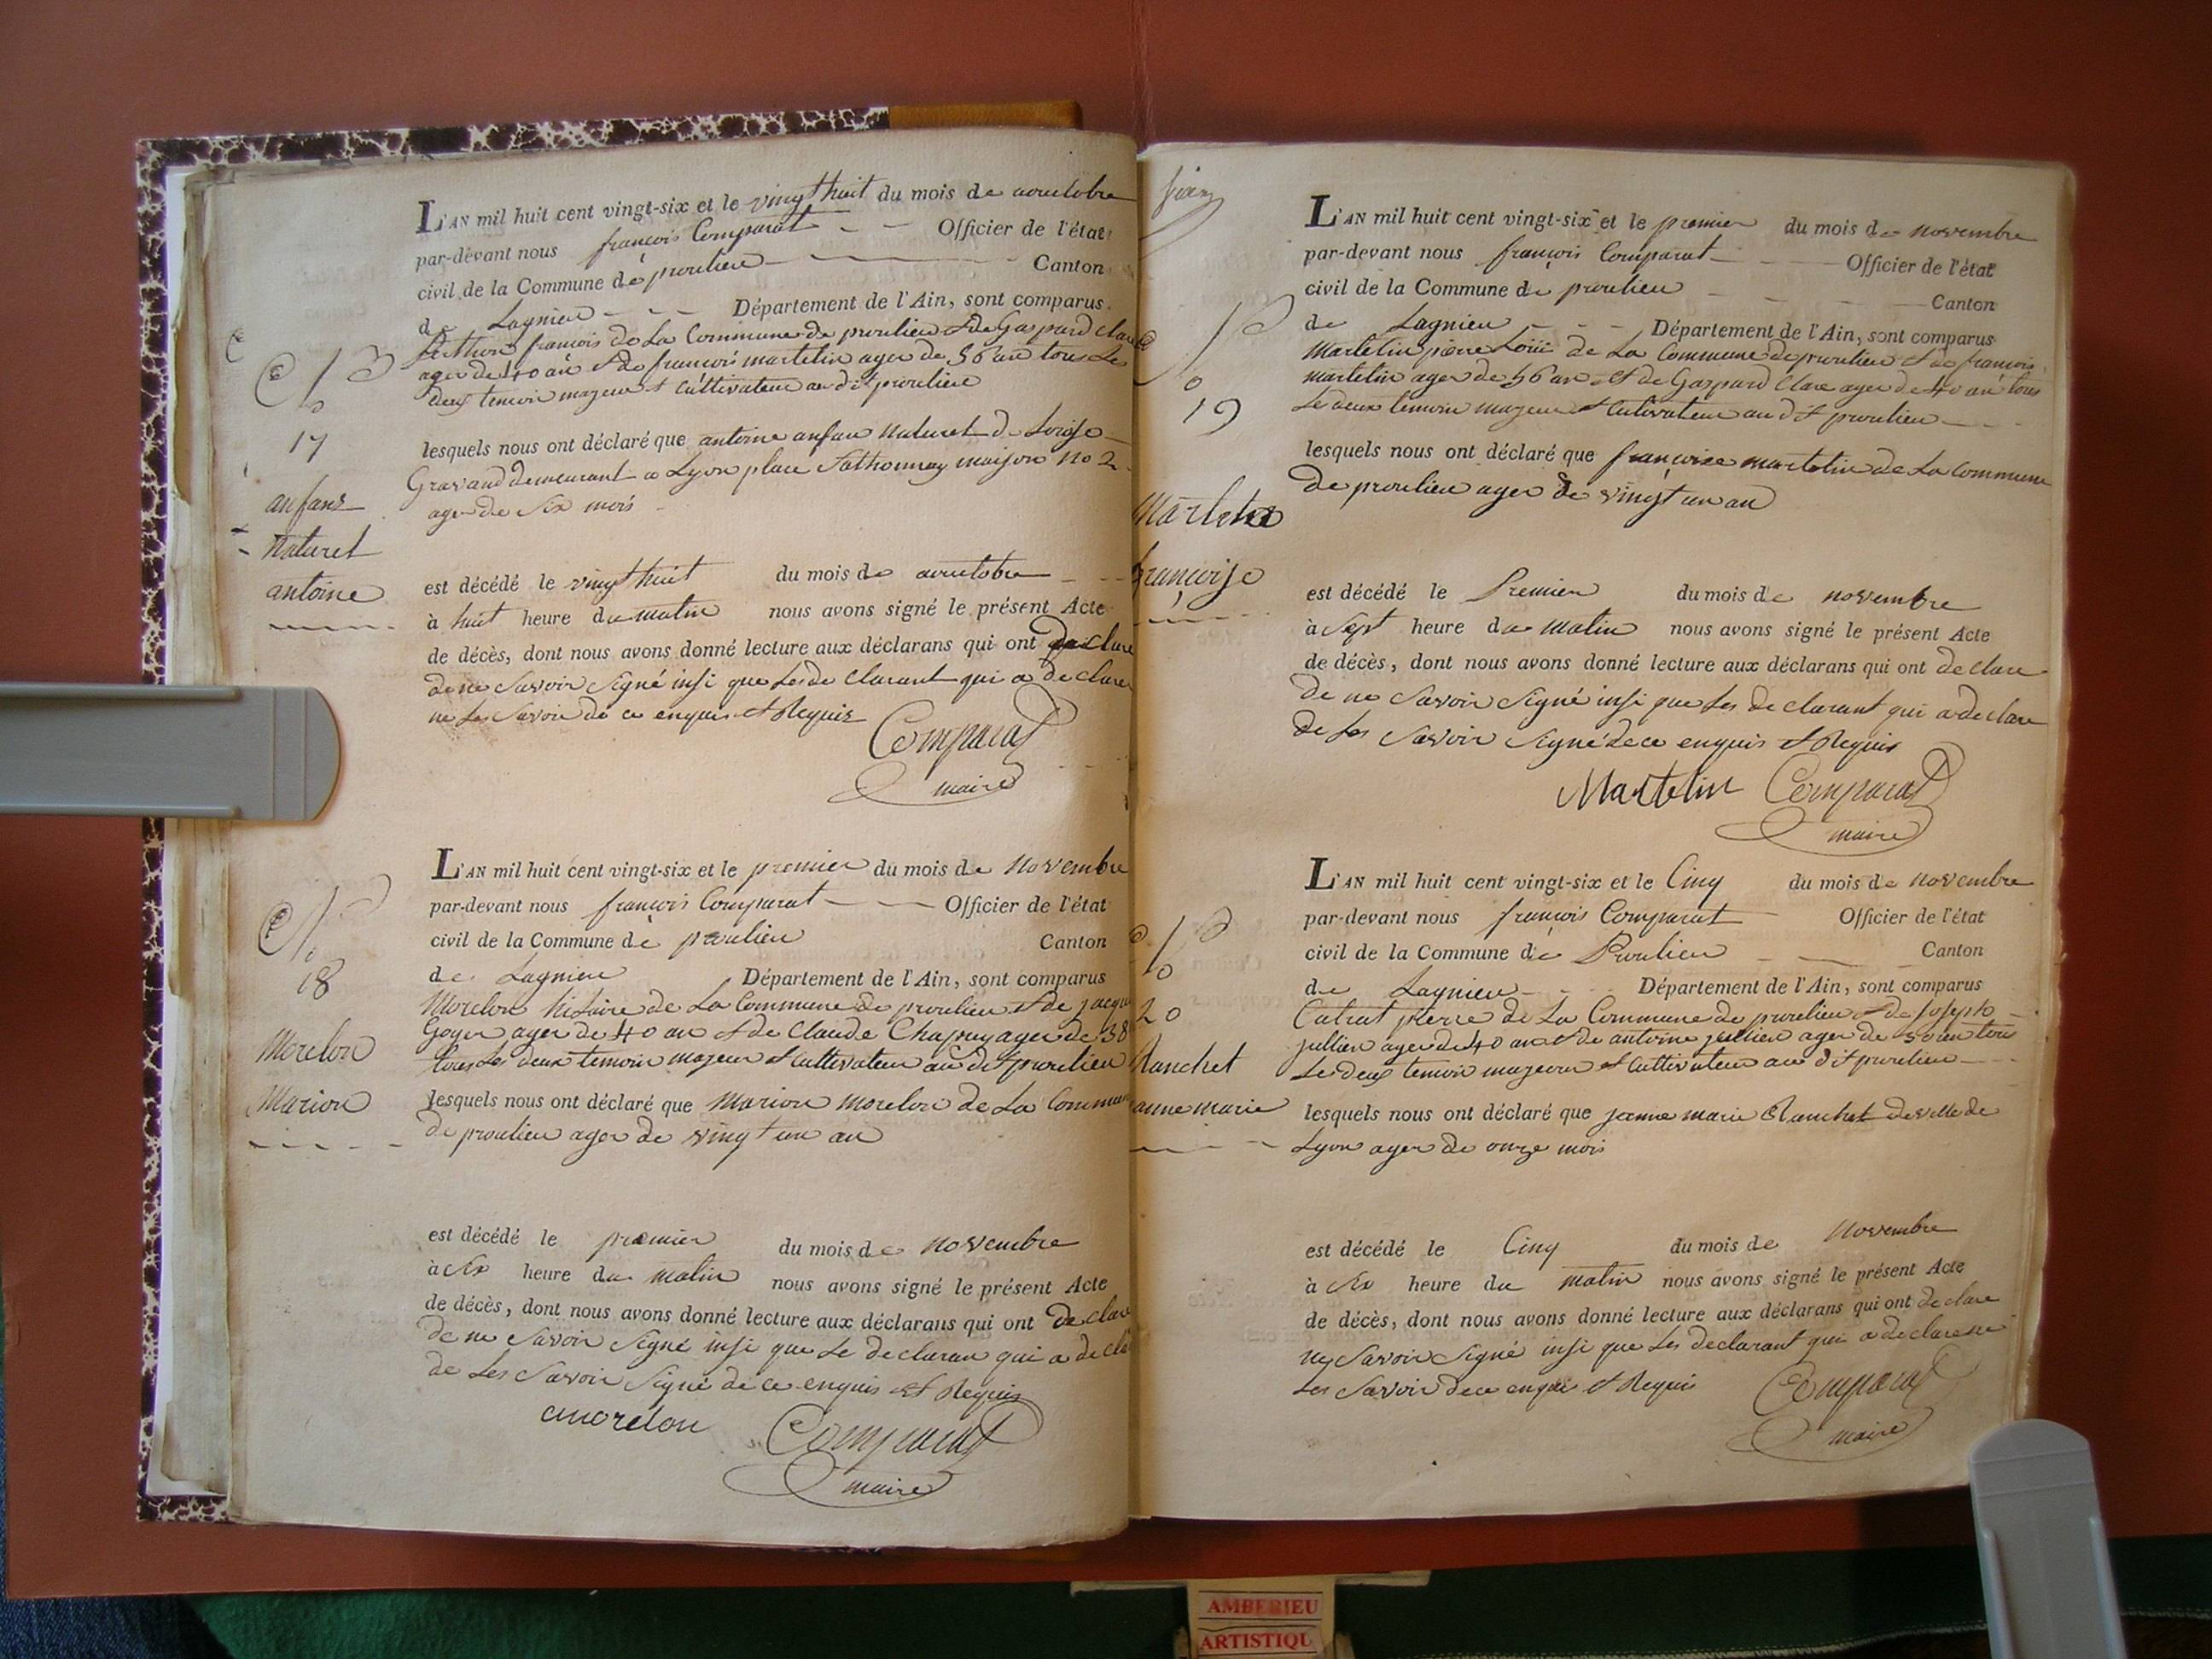 L'AN mil huit cent vingt-six et le vingt huit du mois de aouctobre
par-devant nous françois Comparat Officier de l'état
civil de la Commune de proulieu Canton
de Lagnieu Département de l'Ain, sont comparus
françois de La Commune de proulieu et de Gaspard Clare
ager de 40 an et de françois martelin ager de 56 an tous Les
deux temoin majeur et Cultivateur au dit proulieu
17
lesquels nous ont déclaré que antoine anfan naturel de Loise
Gravand demeurant a Lyon place Sathonnay maison no 2
ager de six mois
anfans
naturel
antoine
est décédé le vingt huit du mois de aouctobre
à huit heure du matin nous avons signé le présent Acte
de décès, dont nous avons donné lecture aux déclarans qui ont declare
de ne savoir signé insi que Les de clarant qui a declare
ne Les savoir de ce enquis et Requis
Comparat
maire
L'AN mil huit cent vingt-six et le premier du mois de novembre
par-devant nous françois Comparat Officier de l'état
civil de la Commune de proulieu Canton
de Lagnieu Département de l'Ain, sont comparus
18
Morelon hilaire de La Commune de proulieu et de jacque
Goyer ager de 40 an et de Claude Chapuy ager de 38
tous Les deux temoin majeur et Cultivateur au dit proulieu
Morelon
Marion
lesquels nous ont déclaré que Marion morelon de La Commun
de proulieu ager de vingt un an
est décédé le premier du mois de novembre
à six heure du matin nous avons signé le présent Acte
de décès, dont nous avons donné lecture aux déclarans qui ont declare
de ne savoir signé insi que Le declaran qui a decla
de Les savoir signé de ce enquis et Requis
morelon Comparat
maire
L'AN mil huit cent vingt-six et le premier du mois de novembre
par-devant nous françois Comparat Officier de l'état
civil de la Commune de proulieu Canton
de Lagnieu Département de l'Ain, sont comparus
Martelin pierre Loüi de La Commune de proulieu et de françois
martelin ager de 56 an et de Gaspard Clare ager de 40 an tous
19
Le deux temoin majeur et Cultivateur au dit proulieu
lesquels nous ont déclaré que françoise martelin de La Commune
de proulieu ager de vingt un an
Martelin
françoise
est décédé le Premier du mois de novembre
à Sept heure du matin nous avons signé le présent Acte
de décès, dont nous avons donné lecture aux déclarans qui ont declare
de ne savoir signé insi que Les de clarant qui a declare
de Les savoir signé de ce enquis et Requis
Martelin Comparat
maire
L'AN mil huit cent vingt-six et le Cinq du mois de novembre
par-devant nous françois Comparat Officier de l'état
civil de la Commune de Proulieu Canton
de Lagnieu Département de l'Ain, sont comparus
20
Catrat pierre de La Commune de proulieu et de joseph
jullien ager de 40 an et de antoine jullien ager de 50 an tous
Les deux temoin majeur et Cultivateur au dit proulieu
Planchet
anne marie
lesquels nous ont déclaré que jeanne marie Planchet de ville de
Lyon ager de onze mois
est décédé le Cinq du mois de novembre
à six heure du matin nous avons signé le présent Acte
de décès, dont nous avons donné lecture aux déclarans qui ont declare
ne savoir signé insi que Les declarant qui a declare ne
Les savoir de ce enquis et Requis
Comparat
maire
AMBERIEU
ARTISTIQU